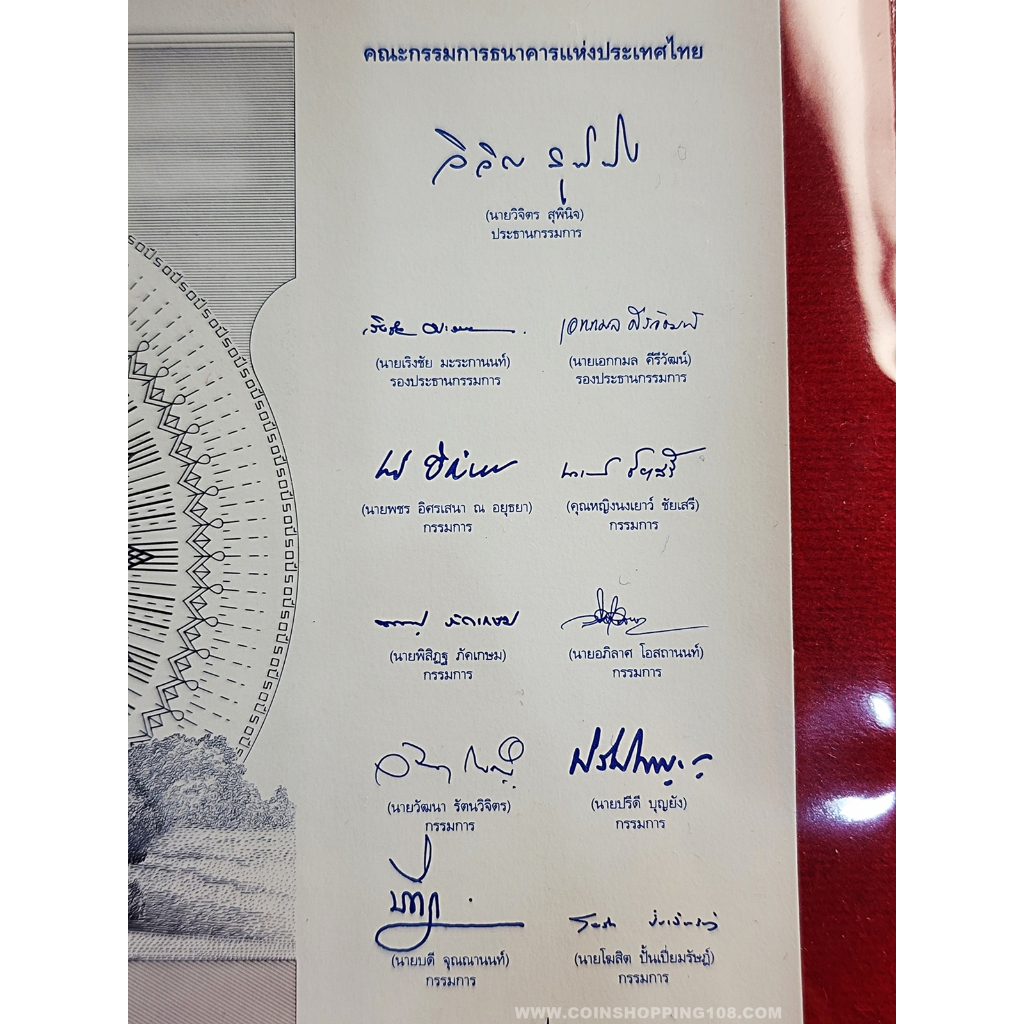 คณะกรรมการธนาคารแห่งประเทศไทย
(นายวิจิตร สุพินิจ)
ประธานกรรมการ
(นายเริงชัย มะระกานนท์)
รองประธานกรรมการ
(นายเอกกมล คีรีวัฒน์)
รองประธานกรรมการ
(นายพชร อิศรเสนา ณ อยุธยา)
กรรมการ
(คุณหญิงนงเยาว์ ชัยเสรี)
กรรมการ
(นายพิสิฏฐ ภัคเกษม)
กรรมการ
(นายอภิลาศ โอสถานนท์)
กรรมการ
(นายวัฒนา รัตนวิจิตร)
กรรมการ
(นายปรีดี บุญยัง)
กรรมการ
(นายบดี จุณณานนท์)
กรรมการ
(นายโฆสิต ปั้นเปี่ยมรัษฎ์)
กรรมการ
WWW.COINSHOPPING108.COM